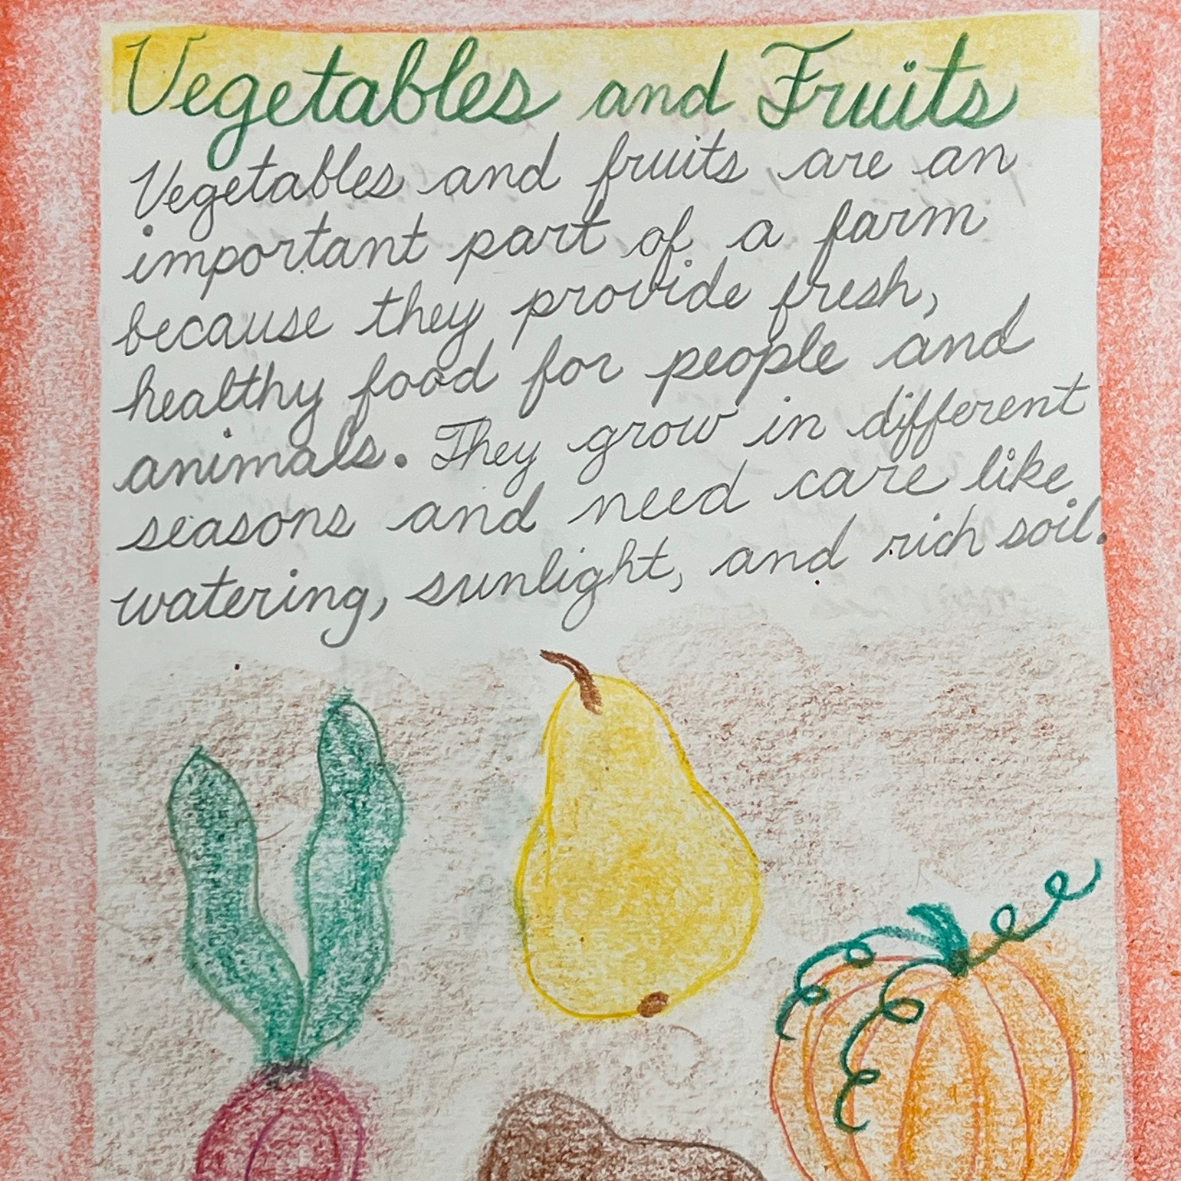 Vegetables and Fruits
Vegetables and fruits are an
important part of a farm
because they provide fresh,
healthy food for people and
animals. They grow in different
seasons and need care like
watering, sunlight, and rich soil.